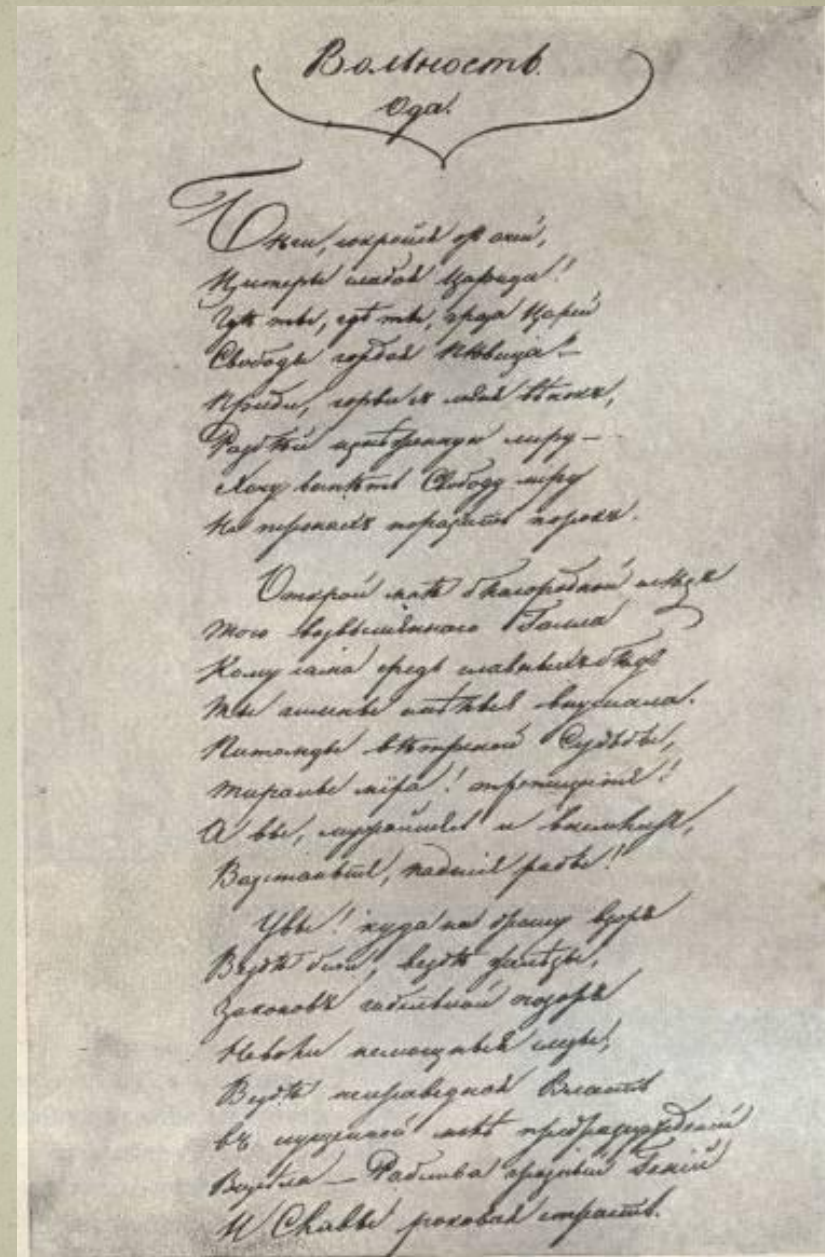 Вольность.
Ода.
Бѣги, сокройся отъ очей,
Цитеры слабая Царица!
Гдѣ ты, гдѣ ты, гроза Царей
Свободы гордая пѣвица? —
Приди, сорви съ меня вѣнокъ,
Разбей изнѣженную лиру —
Хочу воспѣть Свободу миру
На тронахъ поразить порокъ.
Открой мнѣ благородный слѣдъ
Того возвышеннаго Галла
Кому сама средь славныхъ бѣдъ
Ты гимны смѣлыя внушала.
Питомцы вѣтренной Судьбы,
Тираны міра! трепещите!
А вы, мужайтесь и внемлите,
Возстаньте, падшіе рабы!
Увы! куда ни брошу взоръ
Вездѣ бичи, вездѣ желѣзы,
Законовъ гибельной позоръ
Неволи немощныя слезы;
Вездѣ неправедная Власть
Въ сгущенной мглѣ предразсужденій
Возсѣла — Рабства грозный Геній
И Славы роковая страсть.